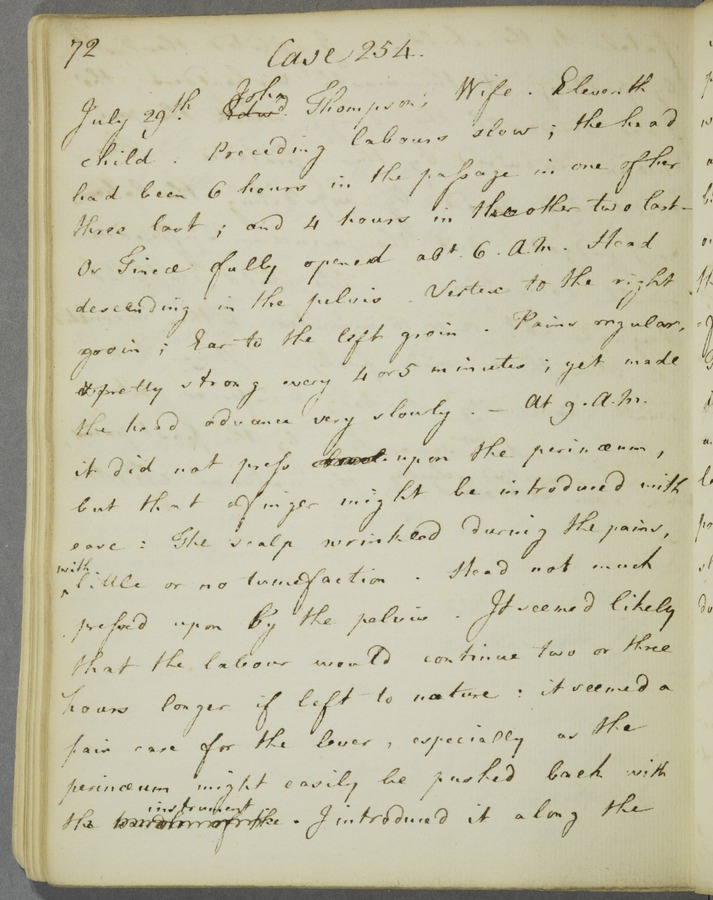 72
Case 254.
July 29th. John Edwd. Thompson's Wife. Eleventh
child. Preceding labours slow; the head
had been 6 hours in the passage in one of her
three last; and 4 hours in the other two last
Os Tincæ fully opened abt. 6. A.M. Head
descending in the pelvis. Vertex to the right
groin; Ear to the left groin. Pains regular,
& pretty strong every 4 or 5 minutes; yet made
the head advance very slowly. — At 9. A.M.
it did not press upon the perinæum,
but that a finger might be introduced with
ease: The scalp wrinkled during the pains,
with little or no tumefaction. Head not much
pressed upon by the pelvis. It seemed likely
that the labour would continue two or three
hours longer if left to nature: it seemed a
fair case for the lever, especially as the
perinæum might easily be pushed back with
the instrument. I introduced it along the